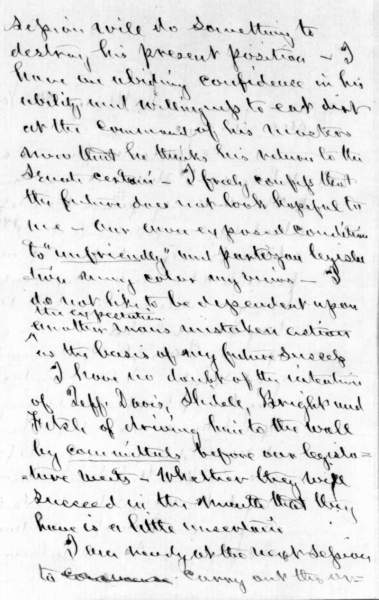 session will do something to
destroy his present position - I
have an abiding confidence in his
ability and willingness to eat dirt
at the command of his masters
now that he thinks his return to the
Senate certain - I freely confess that
the future does not look hopeful to
me - Our own exposed condition
to "unfriendly" and partizan legisla
tion may color my views - I
do not like to be dependent upon
the expectation
another mans mistaken action
^ as the basis of my future success
I have no doubt of the intention
of Jeff. Davis, Slidell, Bright and
Fitch of driving him to the wall
by committals, before our legisla=
ture meets - Whether they will
succeed in the month that they
have is a little uncertain
I am ready at the next session
to carry out the